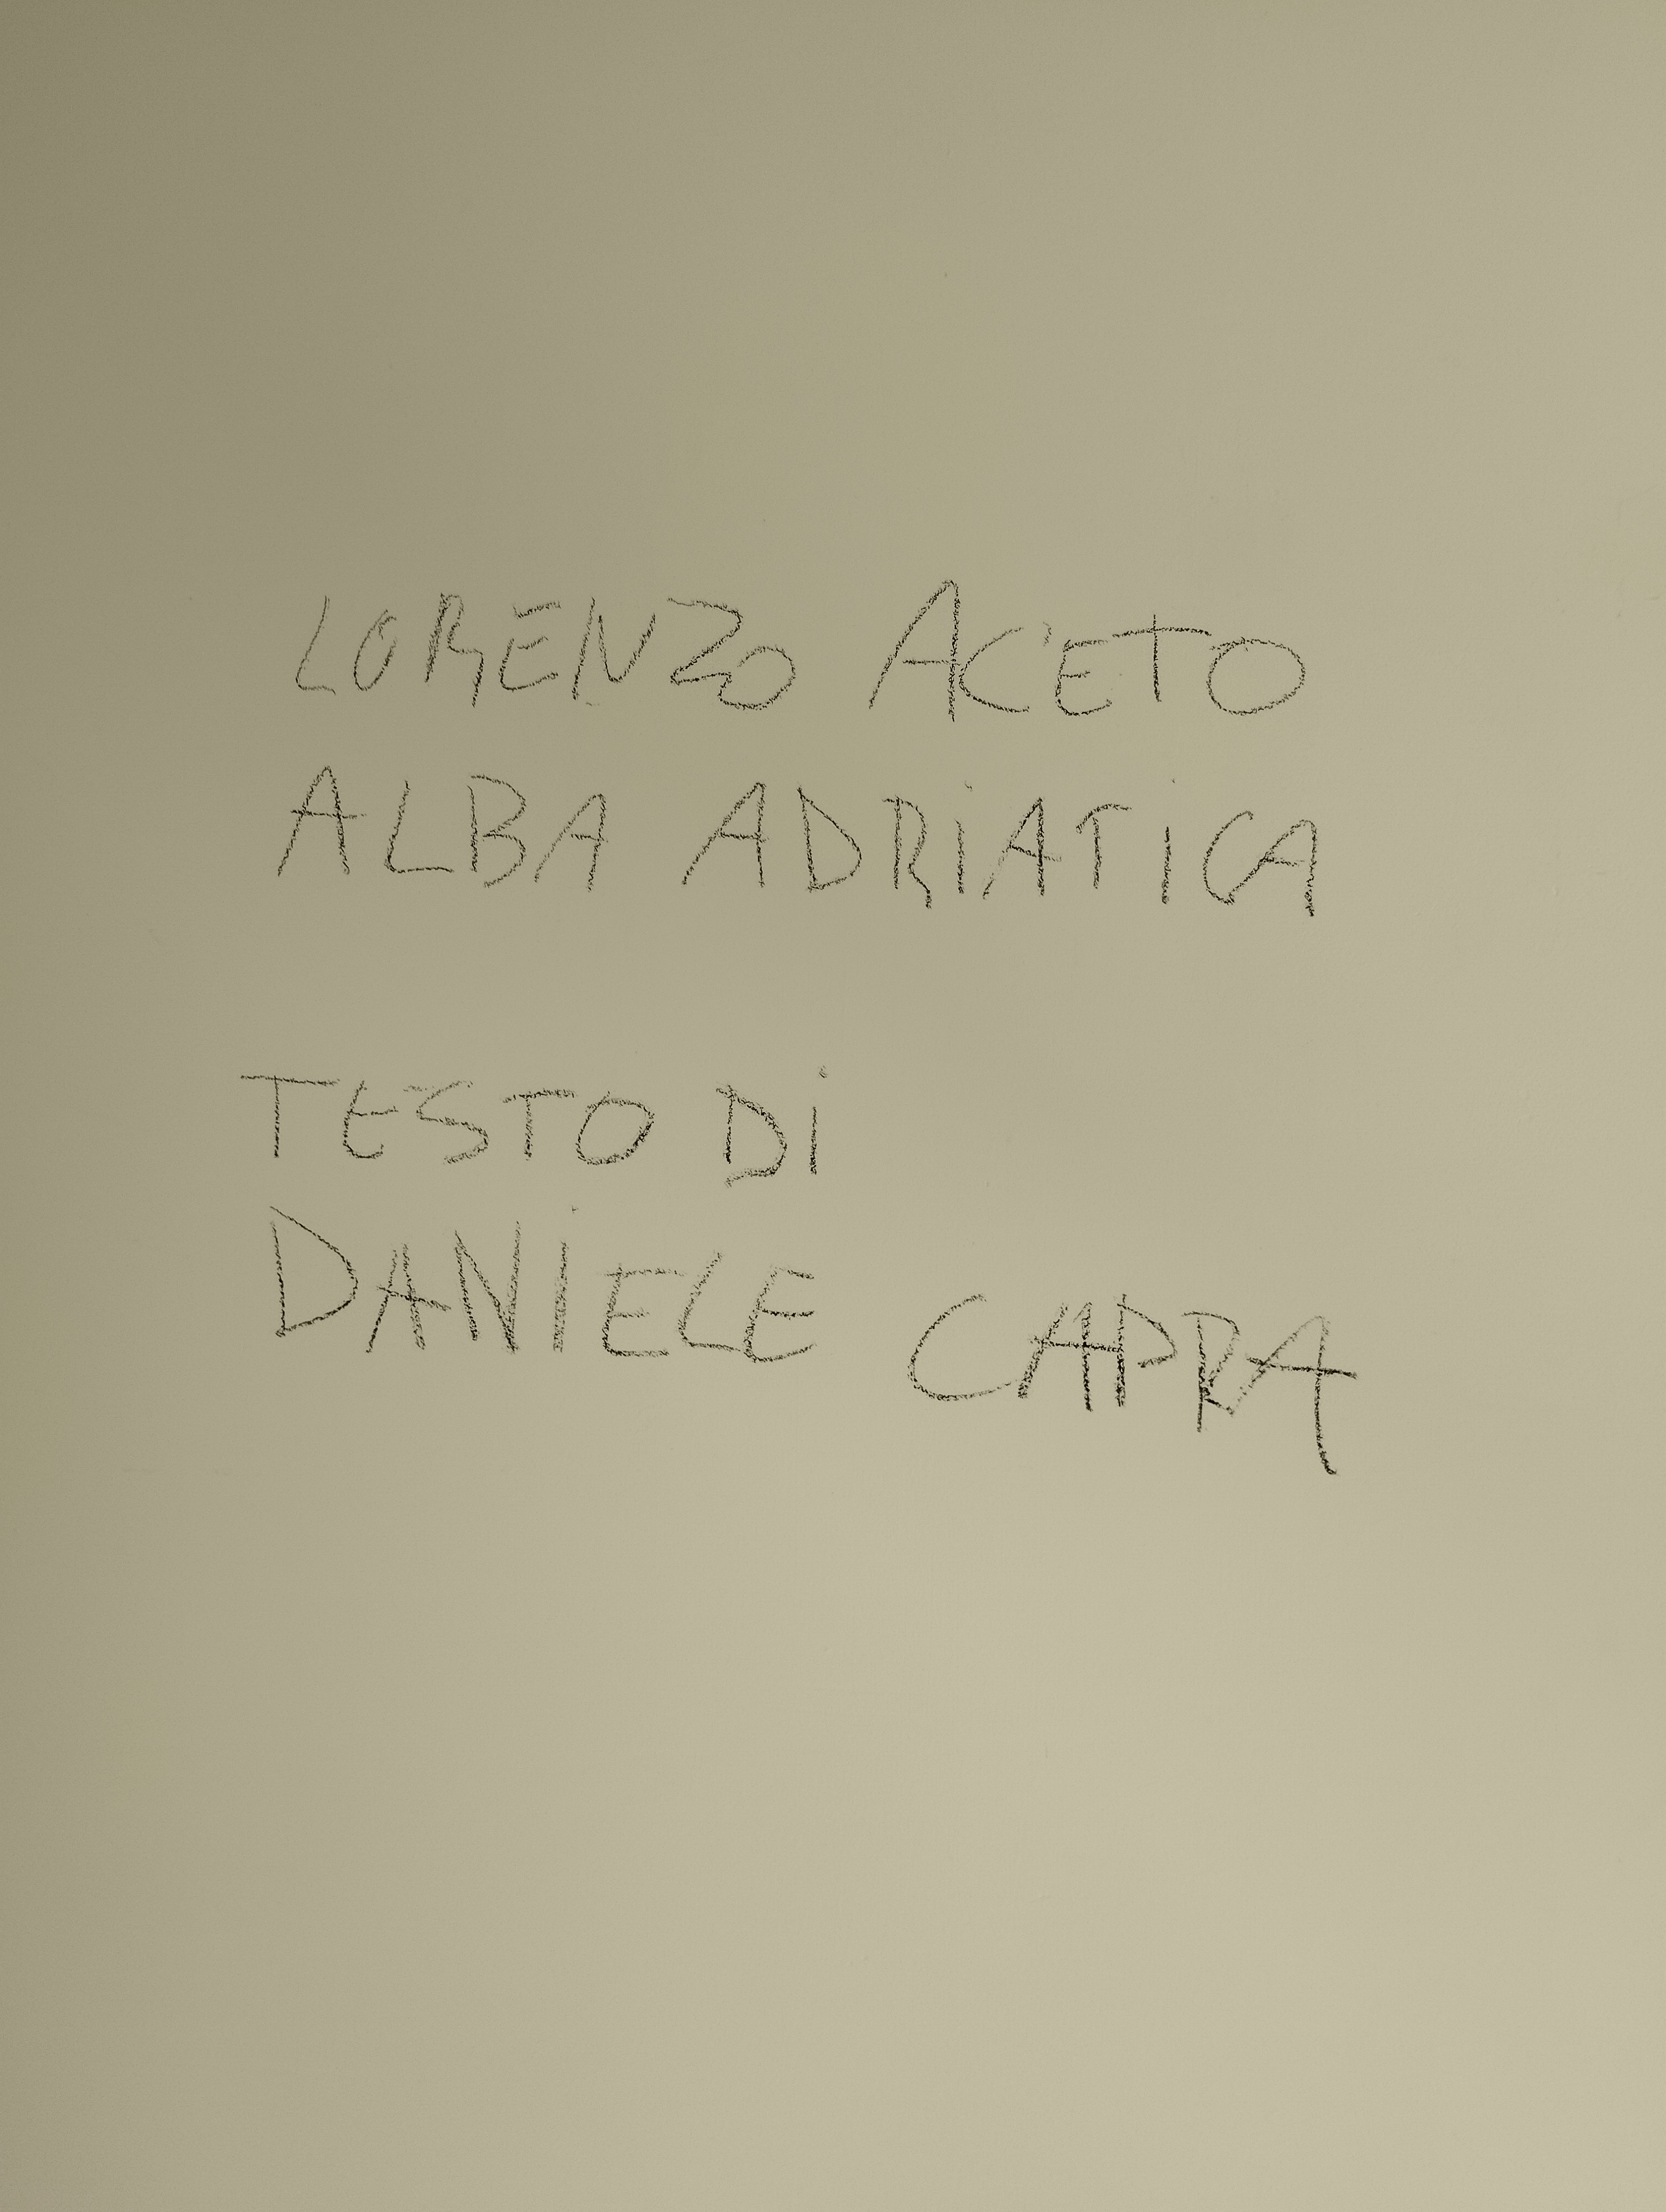 LORENZO ACETO
ALBA ADRiATiCA
TESTO Di
DANiELE CAPRA